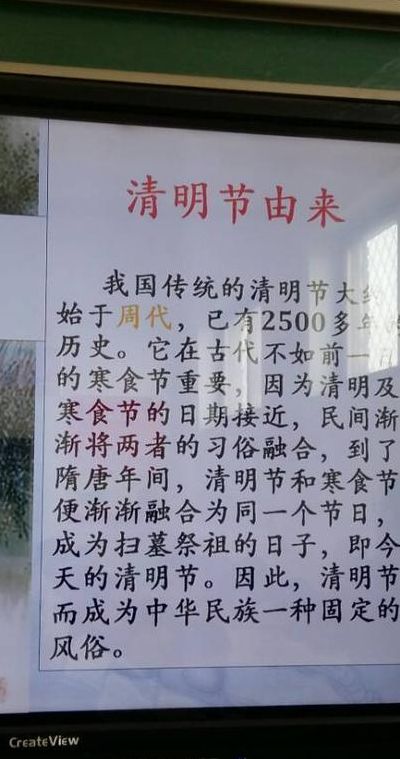 清明节由来
我国传统的清明节大约
始于周代，已有2500多年的
历史。它在古代不如前一日
的寒食节重要，因为清明及
寒食节的日期接近，民间渐
渐将两者的习俗融合，到了
隋唐年间，清明节和寒食节
便渐渐融合为同一个节日，
成为扫墓祭祖的日子，即今
天的清明节。因此，清明节
而成为中华民族一种固定的
风俗。
CreateView